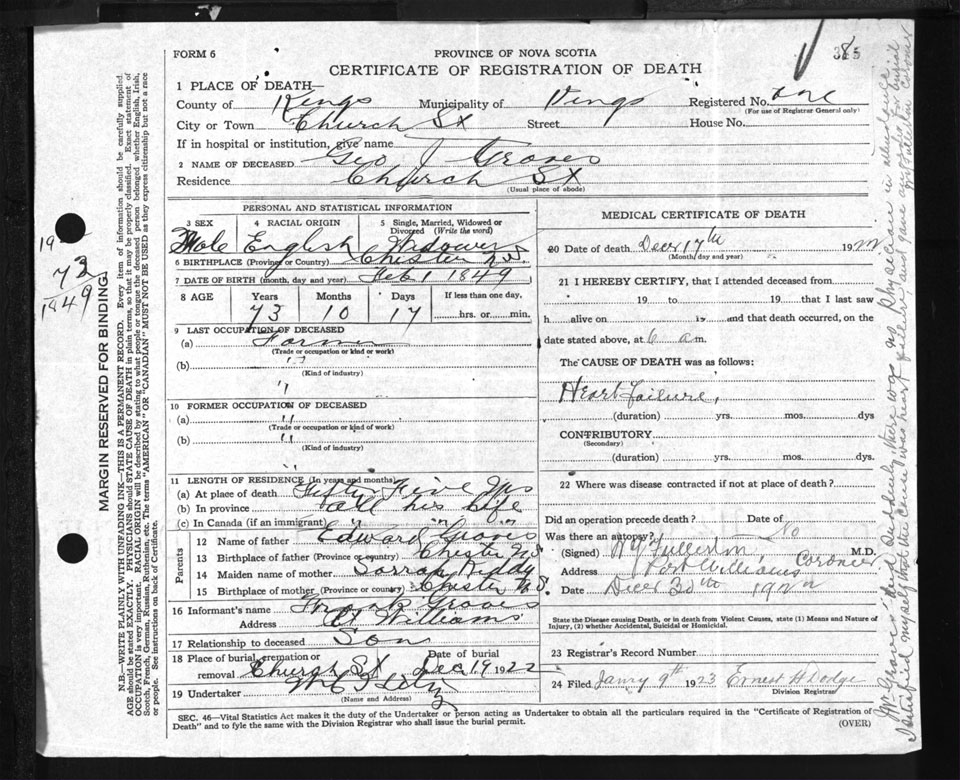 FORM 6
PROVINCE OF NOVA SCOTIA
385
CERTIFICATE OF REGISTRATION OF DEATH
1 PLACE OF DEATH—
County of Kings Municipality of Kings Registered No. one
(For use of Registrar General only)
City or Town Church St Street House No.
If in hospital or institution, give name
2 NAME OF DECEASED Geo J Graves
Residence Church St
(Usual place of abode)
PERSONAL AND STATISTICAL INFORMATION
3 SEX 4 RACIAL ORIGIN 5 Single, Married, Widowed or Divorced (Write the word)
Male English Widower
6 BIRTHPLACE (Province or Country) Chester N.S.
7 DATE OF BIRTH (month, day and year) Feb 1 1849
8 AGE Years Months Days If less than one day,
73 10 17 hrs. or min.
9 LAST OCCUPATION OF DECEASED
(a) Farmer
(Trade or occupation or kind or work)
(b) "
(Kind of industry)
"
10 FORMER OCCUPATION OF DECEASED
(a) "
(Trade or occupation or kind of work)
(b) "
(Kind of industry)
"
11 LENGTH OF RESIDENCE (In years and months)
(a) At place of death Fifty Five Yrs
(b) In province all his life
(c) In Canada (if an immigrant) " " "
Parents
12 Name of father Edward Graves
13 Birthplace of father (Province or country) Chester N.S.
14 Maiden name of mother Sarrah Kiddy
15 Birthplace of mother (Province or country) Chester N.S.
16 Informant's name Frank Graves
Address Pt Williams
17 Relationship to deceased Son
18 Place of burial, cremation or removal Church St Date of burial Dec 19 1922
19 Undertaker
(Name and Address)
MEDICAL CERTIFICATE OF DEATH
20 Date of death Decr 17th 1922
(Month, day and year)
21 I HEREBY CERTIFY, that I attended deceased from
19 to 19 that I last saw
h alive on 19 and that death occurred, on
date stated above, at 6 a m.
The CAUSE OF DEATH was as follows:
Heart Failure,
(duration) yrs. mos. days
CONTRIBUTORY
(Secondary)
(duration) yrs. mos. dys.
22 Where was disease contracted if not at place of death?
Did an operation precede death? Date of
Was there an autopsy? No
(Signed) Fullerton, M.D.
Coroner
Address Port Williams
Date Decr 30th 1922
State the Disease causing Death, or in death from Violent Causes, state (1) Means and Nature of Injury, (2) whether Accidental, Suicidal or Homicidal.
23 Registrar's Record Number
24 Filed Janry 9th 1923 Ernest H Dodge
Division Registrar
SEC. 46—Vital Statistics Act makes it the duty of the Undertaker or person acting as Undertaker to obtain all the particulars required in the "Certificate of Registration of
Death" and to fyle the same with the Division Registrar who shall issue the burial permit.
(OVER)
MARGIN RESERVED FOR BINDING.
N.B.—WRITE PLAINLY WITH UNFADING INK—THIS IS A PERMANENT RECORD. Every item of information should be carefully supplied.
AGE should be stated EXACTLY. PHYSICIANS should STATE CAUSE OF DEATH in plain terms, so that it may be properly classified. Exact statement of
OCCUPATION is very important. RACIAL ORIGIN will be described by stating to what people or tongue the deceased person belonged whether English, Irish,
Scotch, French, German, Russian, Ruthenian, etc. The terms "AMERICAN" OR "CANADIAN" MUST NOT BE USED as they express citizenship but not a race
or people. See instructions on back of Certificate.
19
73
1849
Mr Graves died suddenly there was no Physician in attendance I
satisfied myself that the cause was heart failure and gave
Fullerton Coroner